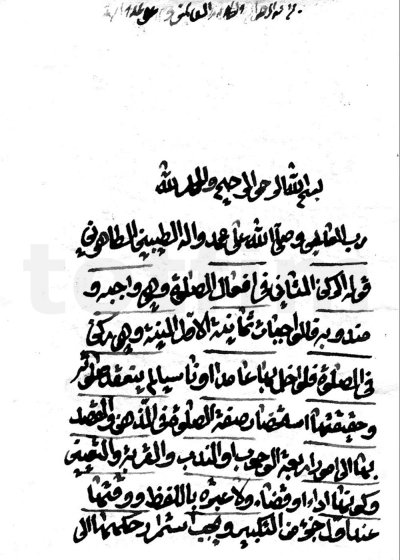 بسم الله الرحمن الرحيم والحمد لله
رب العالمين وصلى الله على محمد واله الطيبين الطاهرين
قوله الركن الثاني في افعال الصلوة وهي واجبه و
مندوبه فالواجبات ثمانية الاول النية وهي ركن
في الصلوة فلو اخل بها عامدا او ناسيا لم ينعقد صلوته
وحقيقتها استحضار صفة الصلوة في الذهن والقصد
بها الى امور اربعة الوجوب او الندب والقربة والتعيين
وكونها اداء او قضاء ولا عبرة باللفظ ووقتها
عند اول جزء من التكبير ويجب استمرار حكمها الى